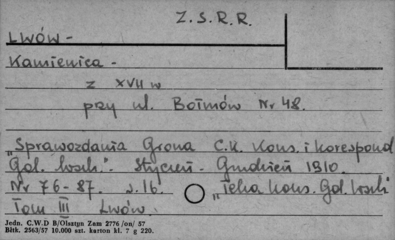 Z.S.R.R.
LWÓW -
Kamienica -
z XVII w
przy ul. Boimów Nr 48.
„Sprawozdania Grona C.K. Kons. i korespond
Gal. wsch." - Styczeń - Grudzień 1910.
Nr 76-87. s.16. „Teka Kons. Gal. wsch"
Tom III Lwów.
Jedn. C.W.D B/Olsztyn Zam 2776 /on/ 57
Błtk. 2563/57 10.000 szt. karton kl. 7 g 220.